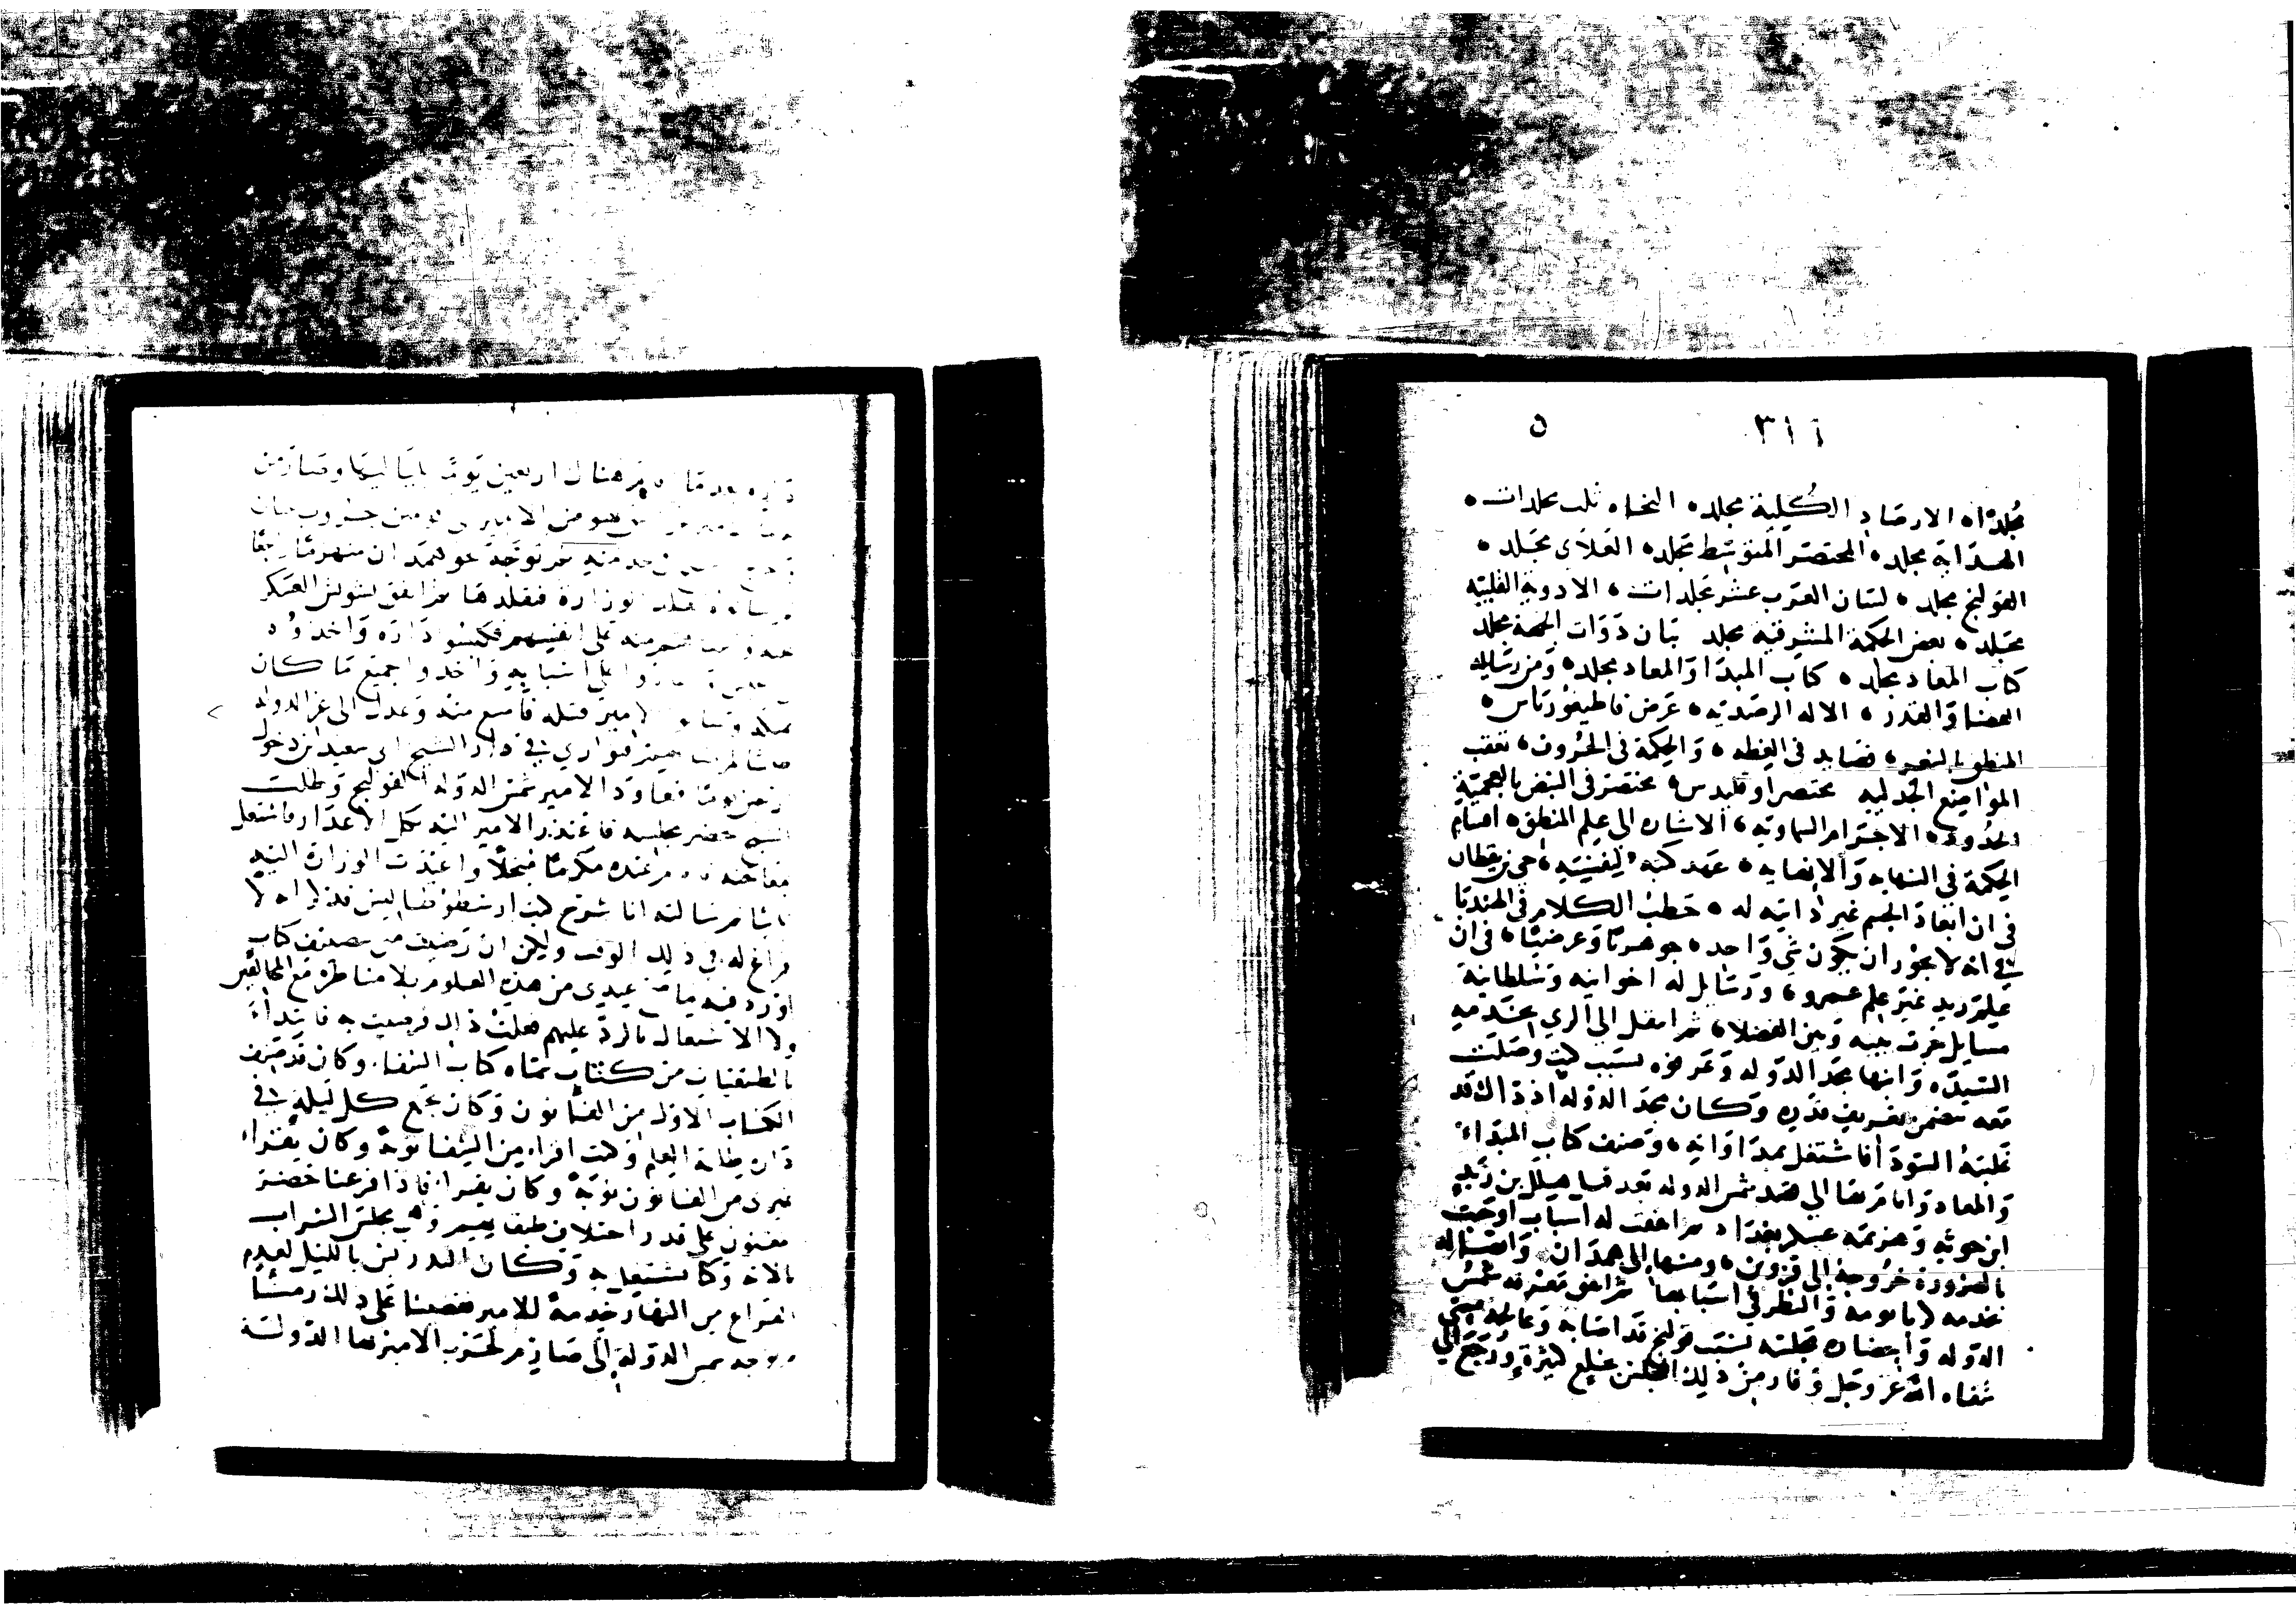 ٣١٦ ٥
مجلدان الارصاد الكلية مجلده النجاه ثلث مجلدات ه
الهداية مجلد ه المختصر المتوسط مجلده العلاى مجلد ه
القولنج مجلد ه لسان العرب عشر مجلدات ه الادوية القلبيه
مجلد ه بعض الحكمة المشرقيه مجلد بيان ذوات الجهة مجلد
كتاب المعاد مجلد ه كتاب المبدا والمعاد مجلده ومن رسايله
القضا والقدر ه الاله الرصديه ه غرض قاطيغورياس ه
المنطق بالشعر ه قصايد فى العظه ه والحكمة فى الحروف ه تعقب
المواضع الجدليه مختصر اوقليدس ه مختصر فى النبض بالعجمية
الحدود ه الاجرام السماويه ه الاشاره الى علم المنطق ه اقسام
الحكمة فى النهايه واللانهايه ه عهد كتبه لنفسه ه حى بن يقظان
فى ان ابعاد الجسم غير ذاتيه له ه خطب الكلام فى الهندبا
فى انه لا يجوز ان يكون شى واحد ه جوهريا وعرضيا ه فى ان
علم زيد غير علم عمرو ه ورسايل له اخوانيه وسلطانية
مسايل جرت بينه وبين الفضلا ه ثم انتقل الى الري بخدمه
السيده وابنها مجد الدوله وعرفوه بسبب كتب وصلت
معه تتضمن تعريف قدره وكان مجد الدوله اذ ذاك قد
غلبته السودا فاشتغل بمداواته ه وصنف كتاب المبداء
والمعاد واقام بها الى قصد شمس الدوله بعد قتل هلال بن بدر
ابن حسويه وهزيمة عسكر بغداد ثم اتفقت له اسباب اوجبت
بالضرورة خروجه الى قزوين ه ومنها الى همدان واتصاله
بخدمه كدبانويه والنظر فى اسبابها ثم اتفق معرفه شمس
الدوله واحضاره مجلسه بسبب قولنج قد اصابه وعالجه حتى
شفاه الله عز وجل وفاز من ذلك المجلس بخلع كثيرة ورجع الى
داره بعد ما اقام هناك اربعين يوما بلياليها وصار من
ثم توجه نحو همدان منهزما راجعا
الوزارة فتقلدها ثم اتفق تشوش العسكر
عليه منه على انفسهم فكبسوا داره واخذوه
على اسبابه واخذوا جميع ما كان
الامير قتله فامتنع منه وعدل الى
فتوارى فى دار الشيخ ابى سعيد بن دخول
اربعين يوما فعاود الامير شمس الدوله القولنج وطلب
الشيخ فحضر مجلسه فاعتذر الامير اليه بكل الاعتذار فاشتغل
بمعالجته واقام عنده مكرما مبجلا واعيدت الوزارة اليه
ثانيا ثم سالته انا شرح كتب ارسطوطاليس فذكر انه لا
فراغ له فى ذلك الوقت ولكن ان رضيت منى بتصنيف كتاب
اورد فيه ما صح عندى من هذه العلوم بلا مناظرة مع المخالفين
ولا الاشتغال بالرد عليهم فعلت ذلك فرضيت به فابتداء
بالطبيعيات من كتاب سماه كتاب الشفاء وكان قد صنف
الكتاب الاول من القانون وكان يجمع كل ليله فى
داره طلبة العلم وكنت اقراء من الشفا نوبة وكان يقراء
غيرى من القانون نوبة وكان يقراء فاذا فرغنا حضر
المغنون على قدر اختلاف طبقاتهم وهى مجلس الشراب
بالاته وكنا نشتغل به وكان التدريس بالليل لعدم
الفراغ من النهار خدمة للامير فقضينا على ذلك زمنا
وتوجه شمس الدولة الى طارم لحرب الامير بها الدولة